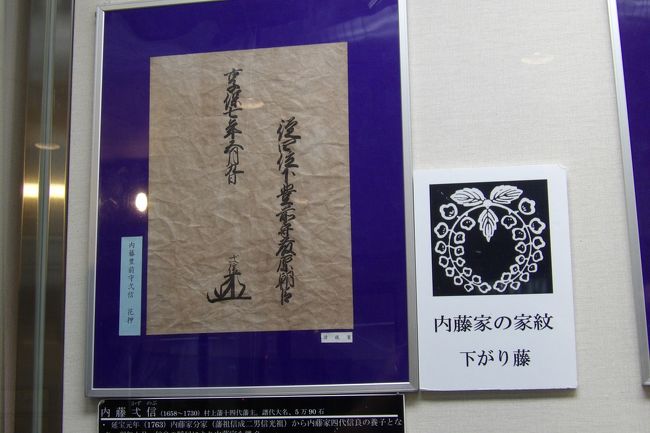 従四位下豊前守藤原朝臣
弌信
享保七年
内藤豊前守弌信 花押
内藤家の家紋
下がり藤
内 藤 弌 信（1658～1730）村上藩十四代藩主、譜代大名、5万90石
・延宝元年（1763）内藤家分家（藩祖信成二男信光祖）から内藤家四代信良の養子とな